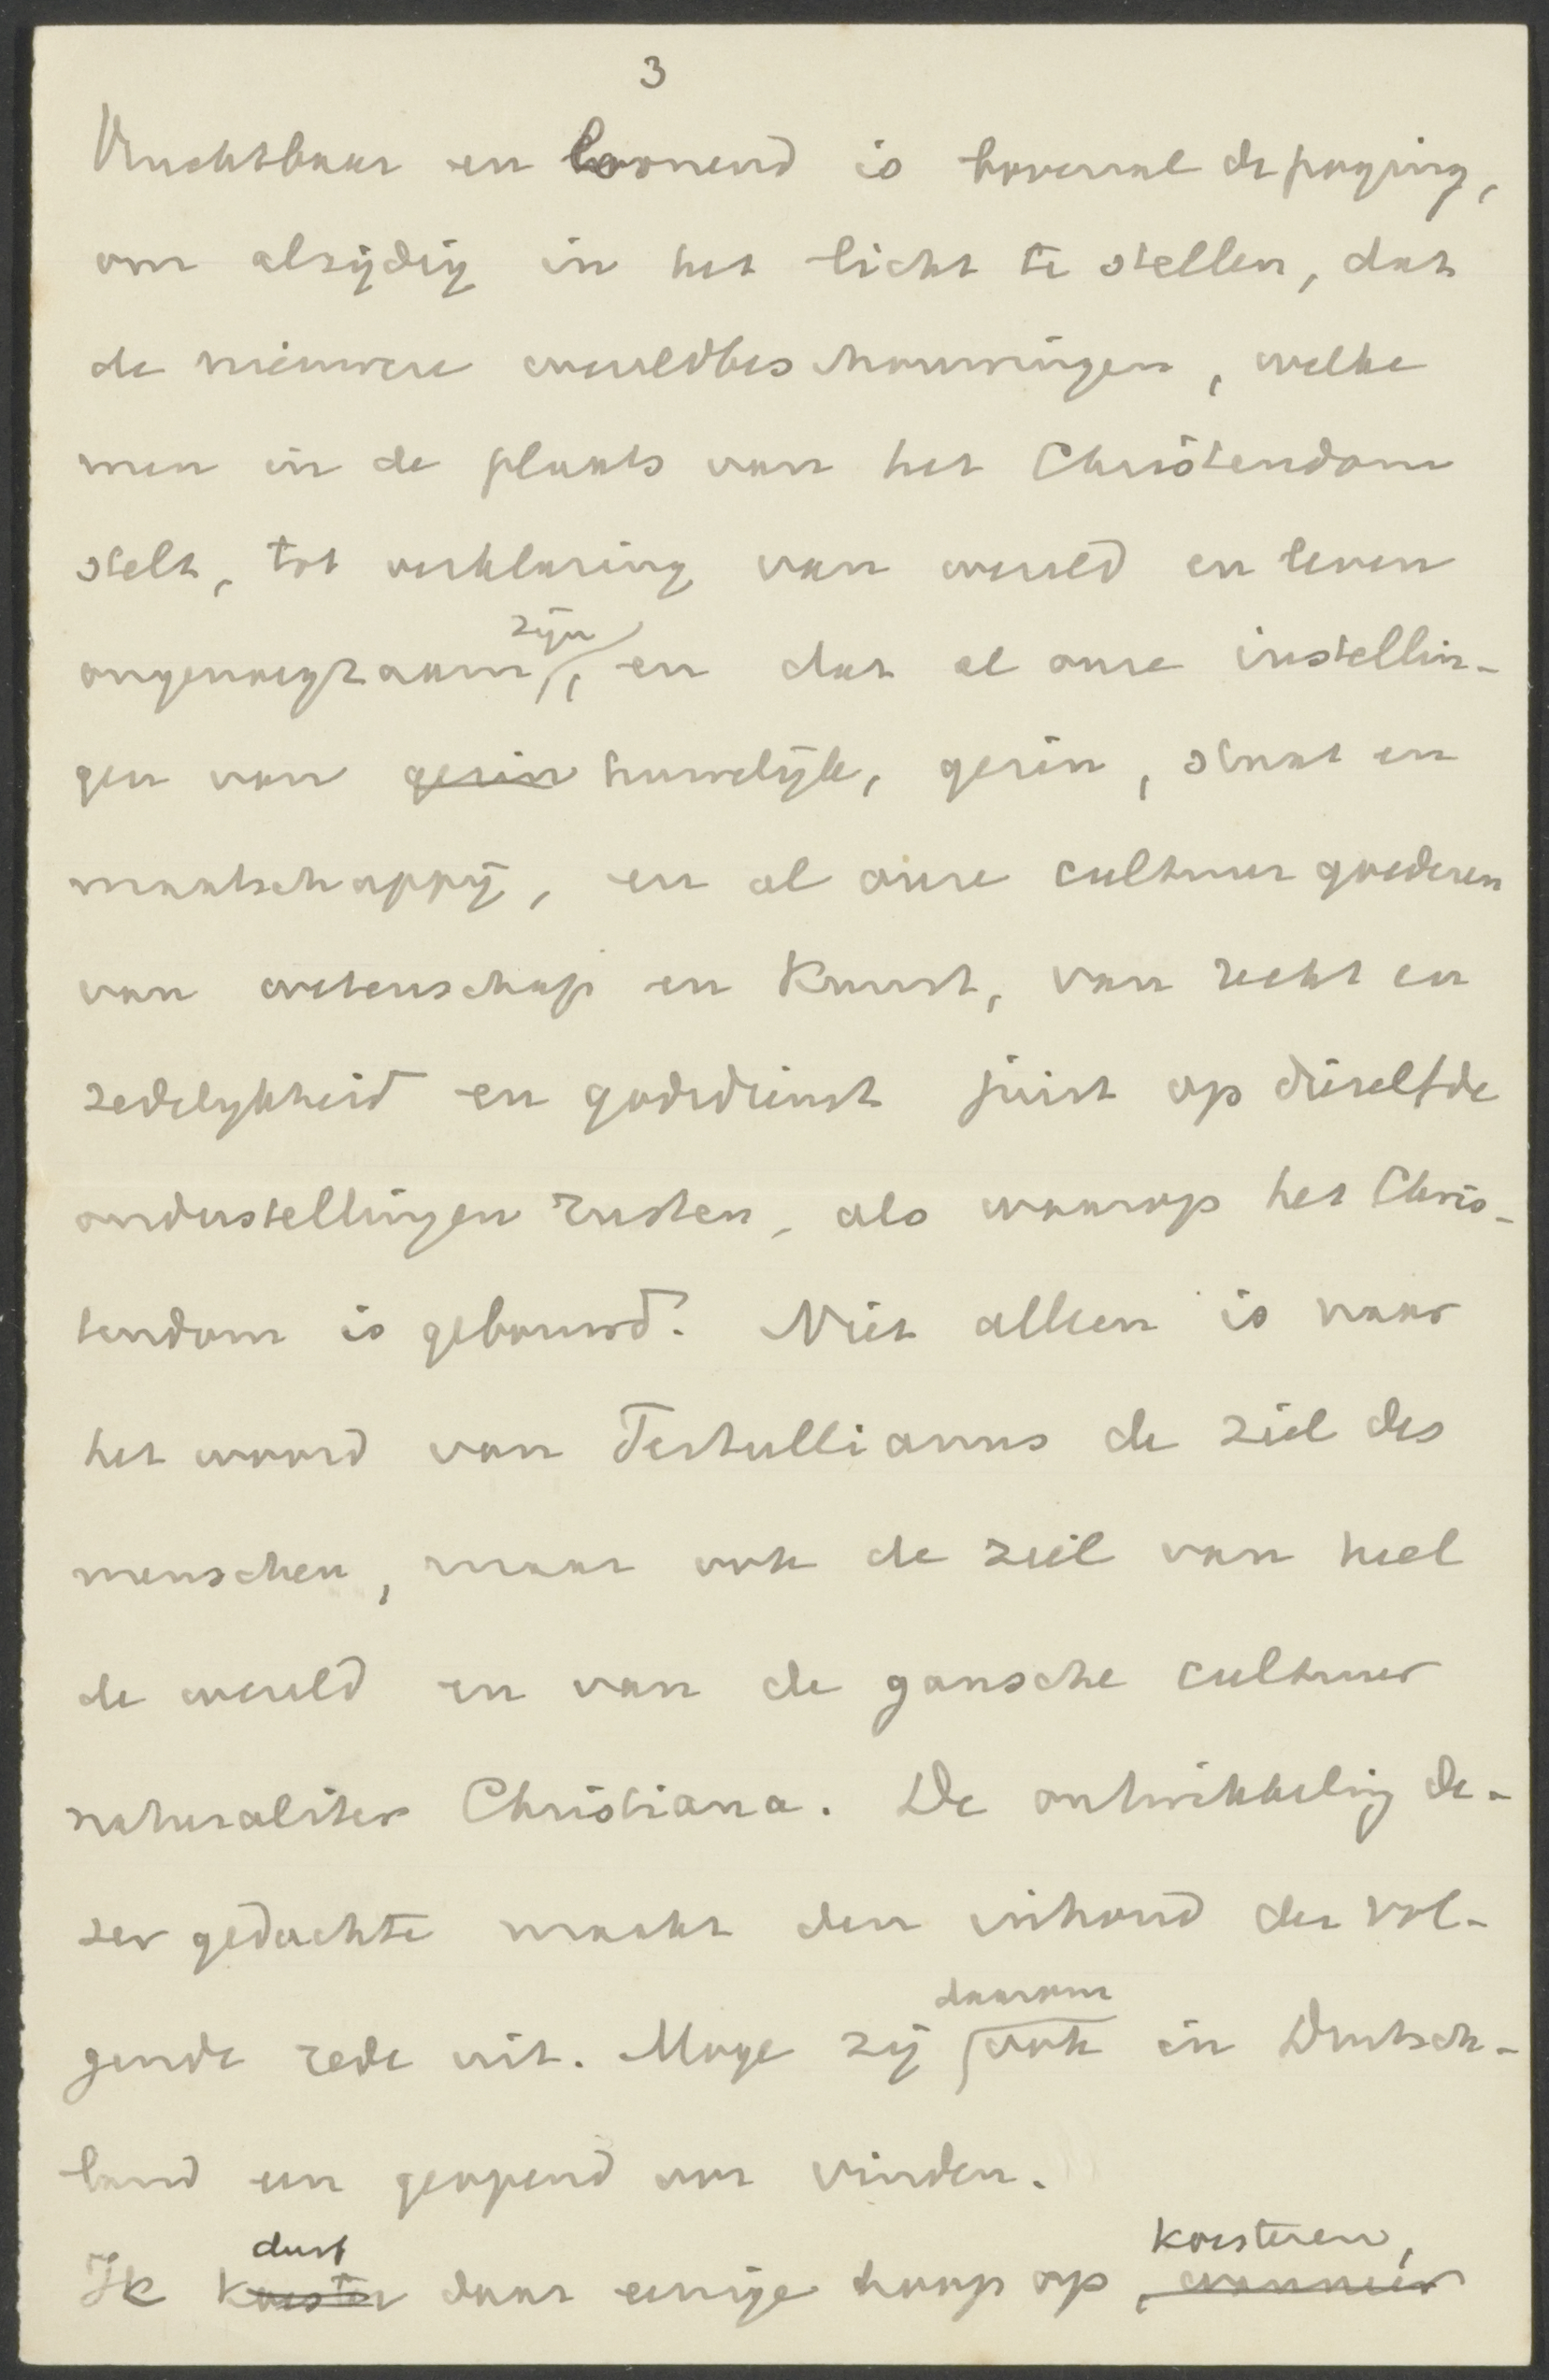 3
Vruchtbaar en loonend is bovenal de poging,
om alzijdig in het licht te stellen, dat
de nieuwere wereldbeschouwingen, welke
men in de plaats van het Christendom
stelt, tot verklaring van wereld en leven
ongenoegzaam zijn, en dat al onze instellin-
gen van gezin huwelijk, gezin, staat en
maatschappij, en al onze cultuurgoederen
van wetenschap en kunst, van recht en
zedelijkheid en godsdienst juist op diezelfde
onderstellingen rusten, als waarop het Chris-
tendom is gebouwd. Niet alleen is naar
het woord van Tertullianus de ziel des
menschen, maar ook de ziel van heel
de wereld en van de gansche cultuur
naturaliter Christiana. De ontwikkeling de-
zer gedachte maakt den inhoud der vol-
gende rede uit. Moge zij daarom ook in Duitsch-
land een geopend oor vinden.
Ik koester durf daar eenige hoop op, wanneer koesteren,